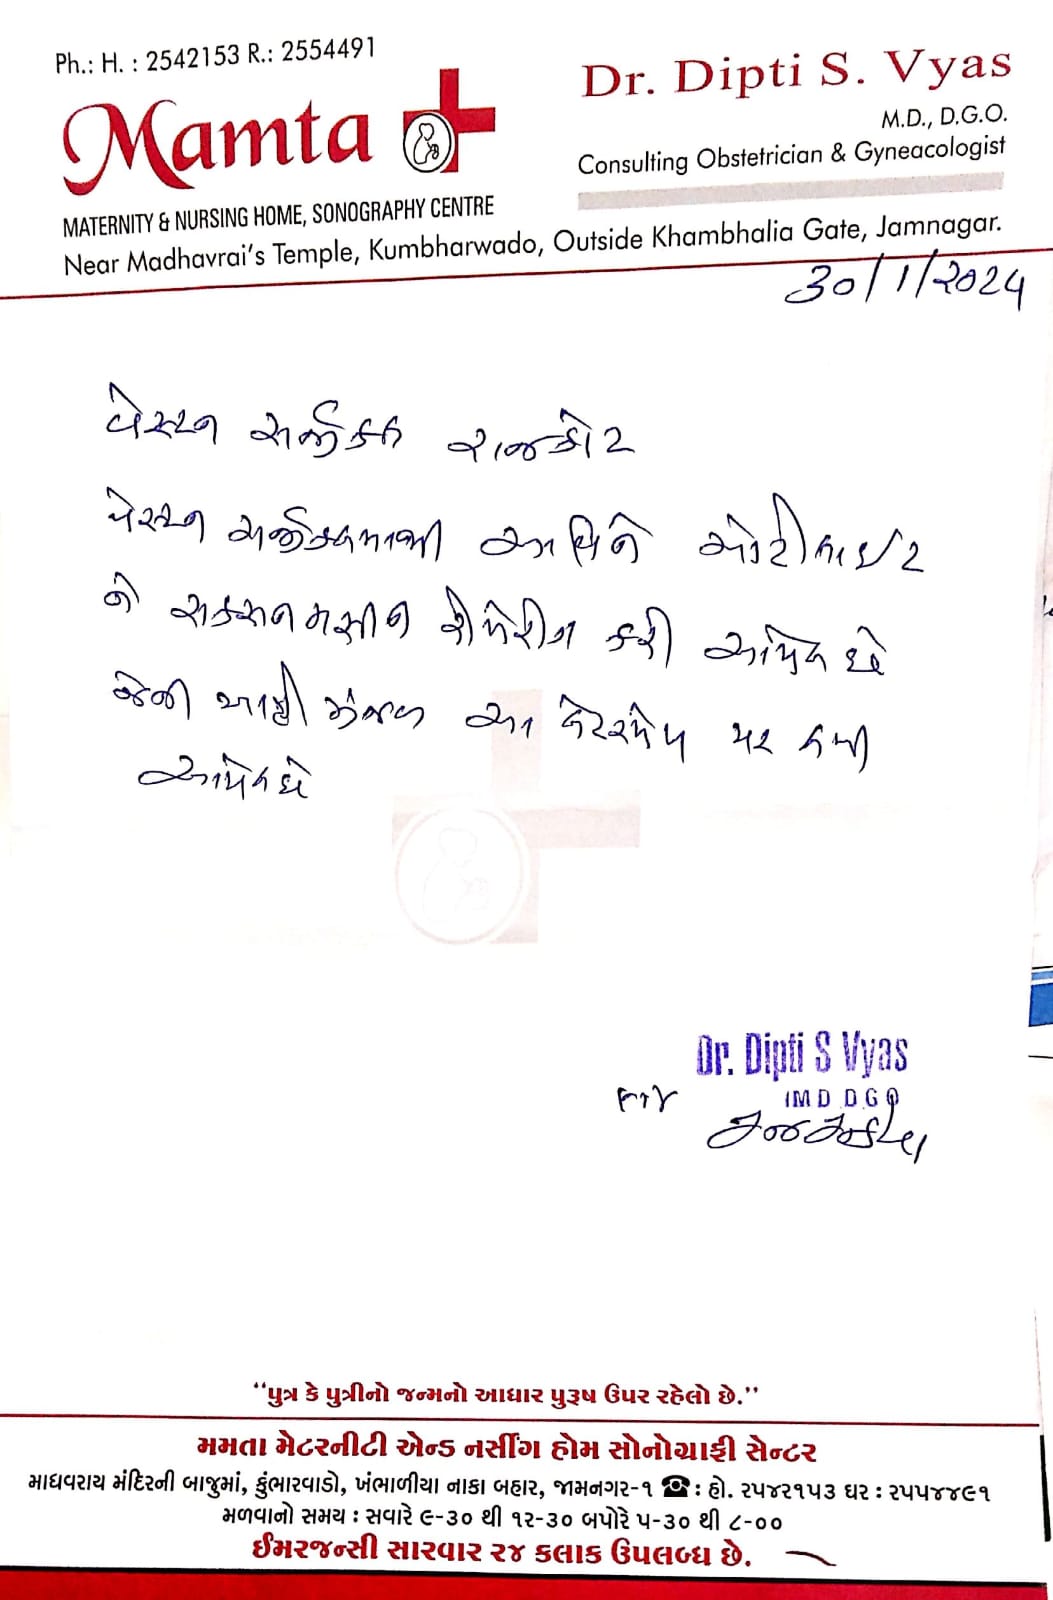 Ph.: H. : 2542153 R.: 2554491
Mamta
MATERNITY & NURSING HOME, SONOGRAPHY CENTRE
Dr. Dipti S. Vyas
M.D., D.G.O.
Consulting Obstetrician & Gyneacologist
Near Madhavrai's Temple, Kumbharwado, Outside Khambhalia Gate, Jamnagar.
૩૦/૧/૨૦૨૪
વેસ્ટન સર્જીકલ રાજકોટ
વેસ્ટન સર્જીકલમાથી આવિને ઓટોકલાઈટ
ને સકશન મશીન રીપેરીંગ કરી આપેલ છે
જેની આ લેટરપેડ પર કરી
આપેલ છે
Dr. Dipti S Vyas
M D D G O
For
"પુત્ર કે પુત્રીનો જન્મનો આધાર પુરૂષ ઉપર રહેલો છે."
મમતા મેટરનીટી એન્ડ નર્સીંગ હોમ સોનોગ્રાફી સેન્ટર
માધવરાય મંદિરની બાજુમાં, કુંભારવાડો, ખંભાળીયા નાકા બહાર, જામનગર-૧ ☎ : હો. ૨૫૪૨૧૫૩ ઘર : ૨૫૫૪૪૯૧
મળવાનો સમય : સવારે ૯-૩૦ થી ૧૨-૩૦ બપોરે ૫-૩૦ થી ૮-૦૦
ઈમરજન્સી સારવાર ૨૪ કલાક ઉપલબ્ધ છે.